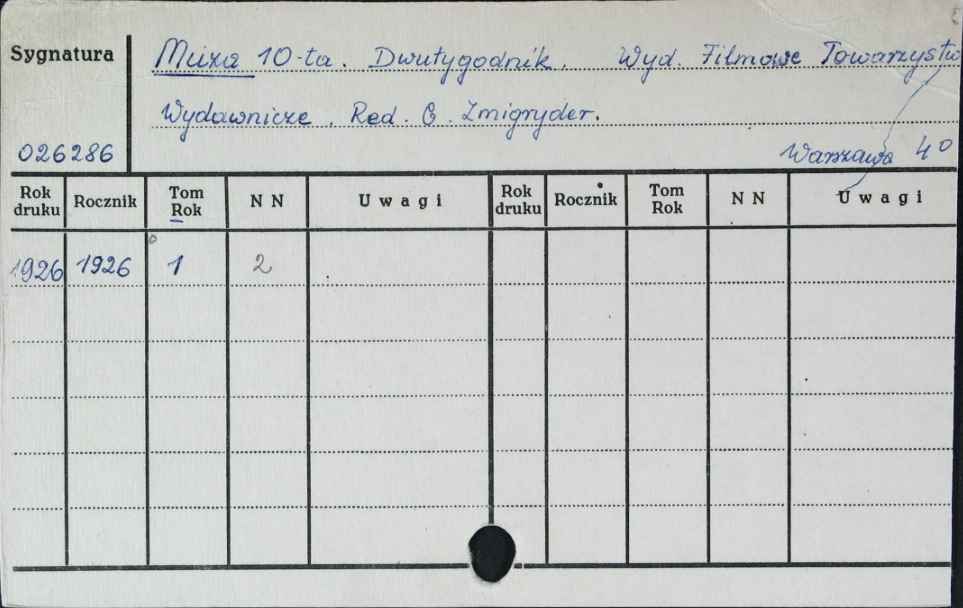 Sygnatura
Muza 10-ta. Dwutygodnik. Wyd. Filmowe Towarzystwo
Wydawnicze. Red. G. Zmigryder.
026286
Warszawa 4°
Rok druku Rocznik Tom Rok N N Uwagi Rok druku Rocznik Tom Rok N N Uwagi
1926 1926 1 2